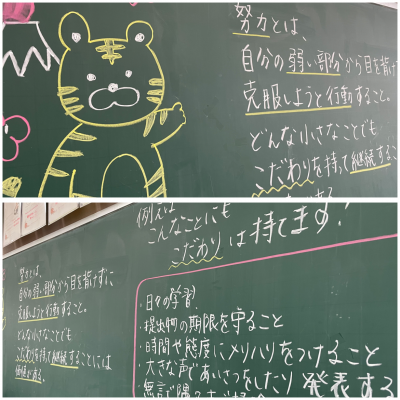 努力とは、
自分の弱い部分から目を背け
克服しようと行動すること。
どんな小さなことでも
こだわりを持って継続する
例えば
こんなことにも
こだわりは持てます!
努力とは、
自分の弱い部分から目を背けずに
克服しようと行動すること。
どんな小さなことでも
こだわりを持って継続することには
価値がある。
・日々の学習
・提出物の期限を守ること
・時間や態度にメリハリをつけること
・大きな声であいさつをしたり 発表する
・無言で隅